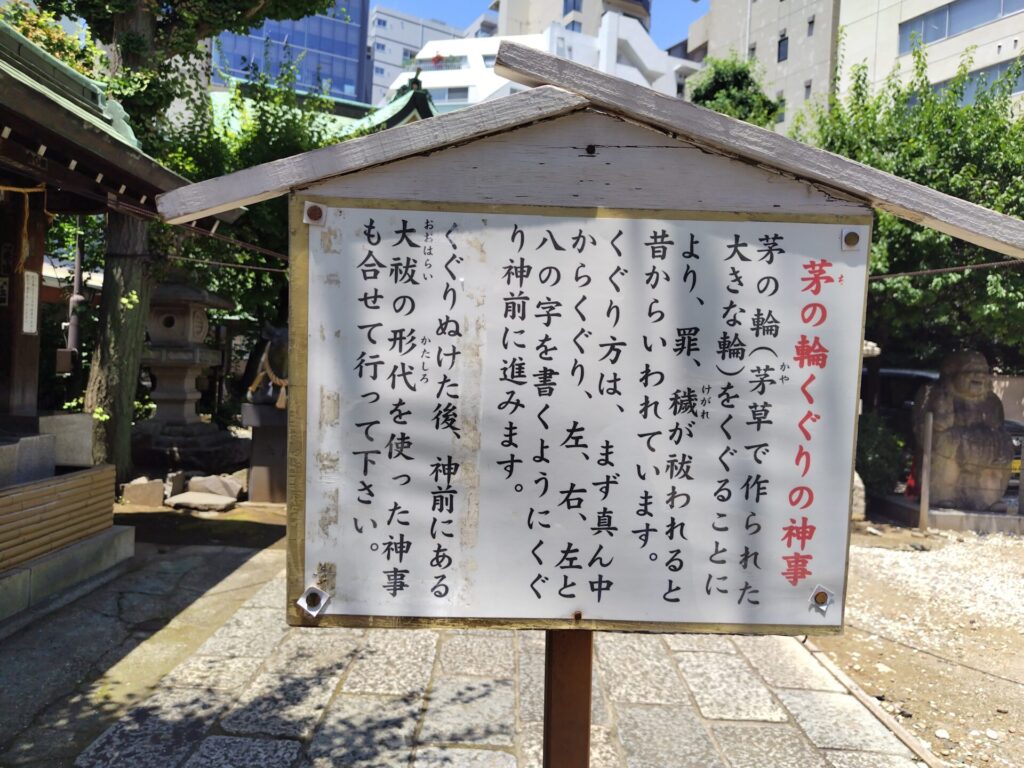 茅の輪くぐりの神事
茅の輪(茅草で作られた
大きな輪)をくぐることに
より、罪、穢が祓われると
昔からいわれています。
くぐり方は、まず真ん中
からくぐり、左、右、左と
八の字を書くようにくぐ
り神前に進みます。
くぐりぬけた後、神前にある
大祓の形代を使った神事
も合せて行って下さい。
ち
かや
けがれ
おおはらい
かたしろ